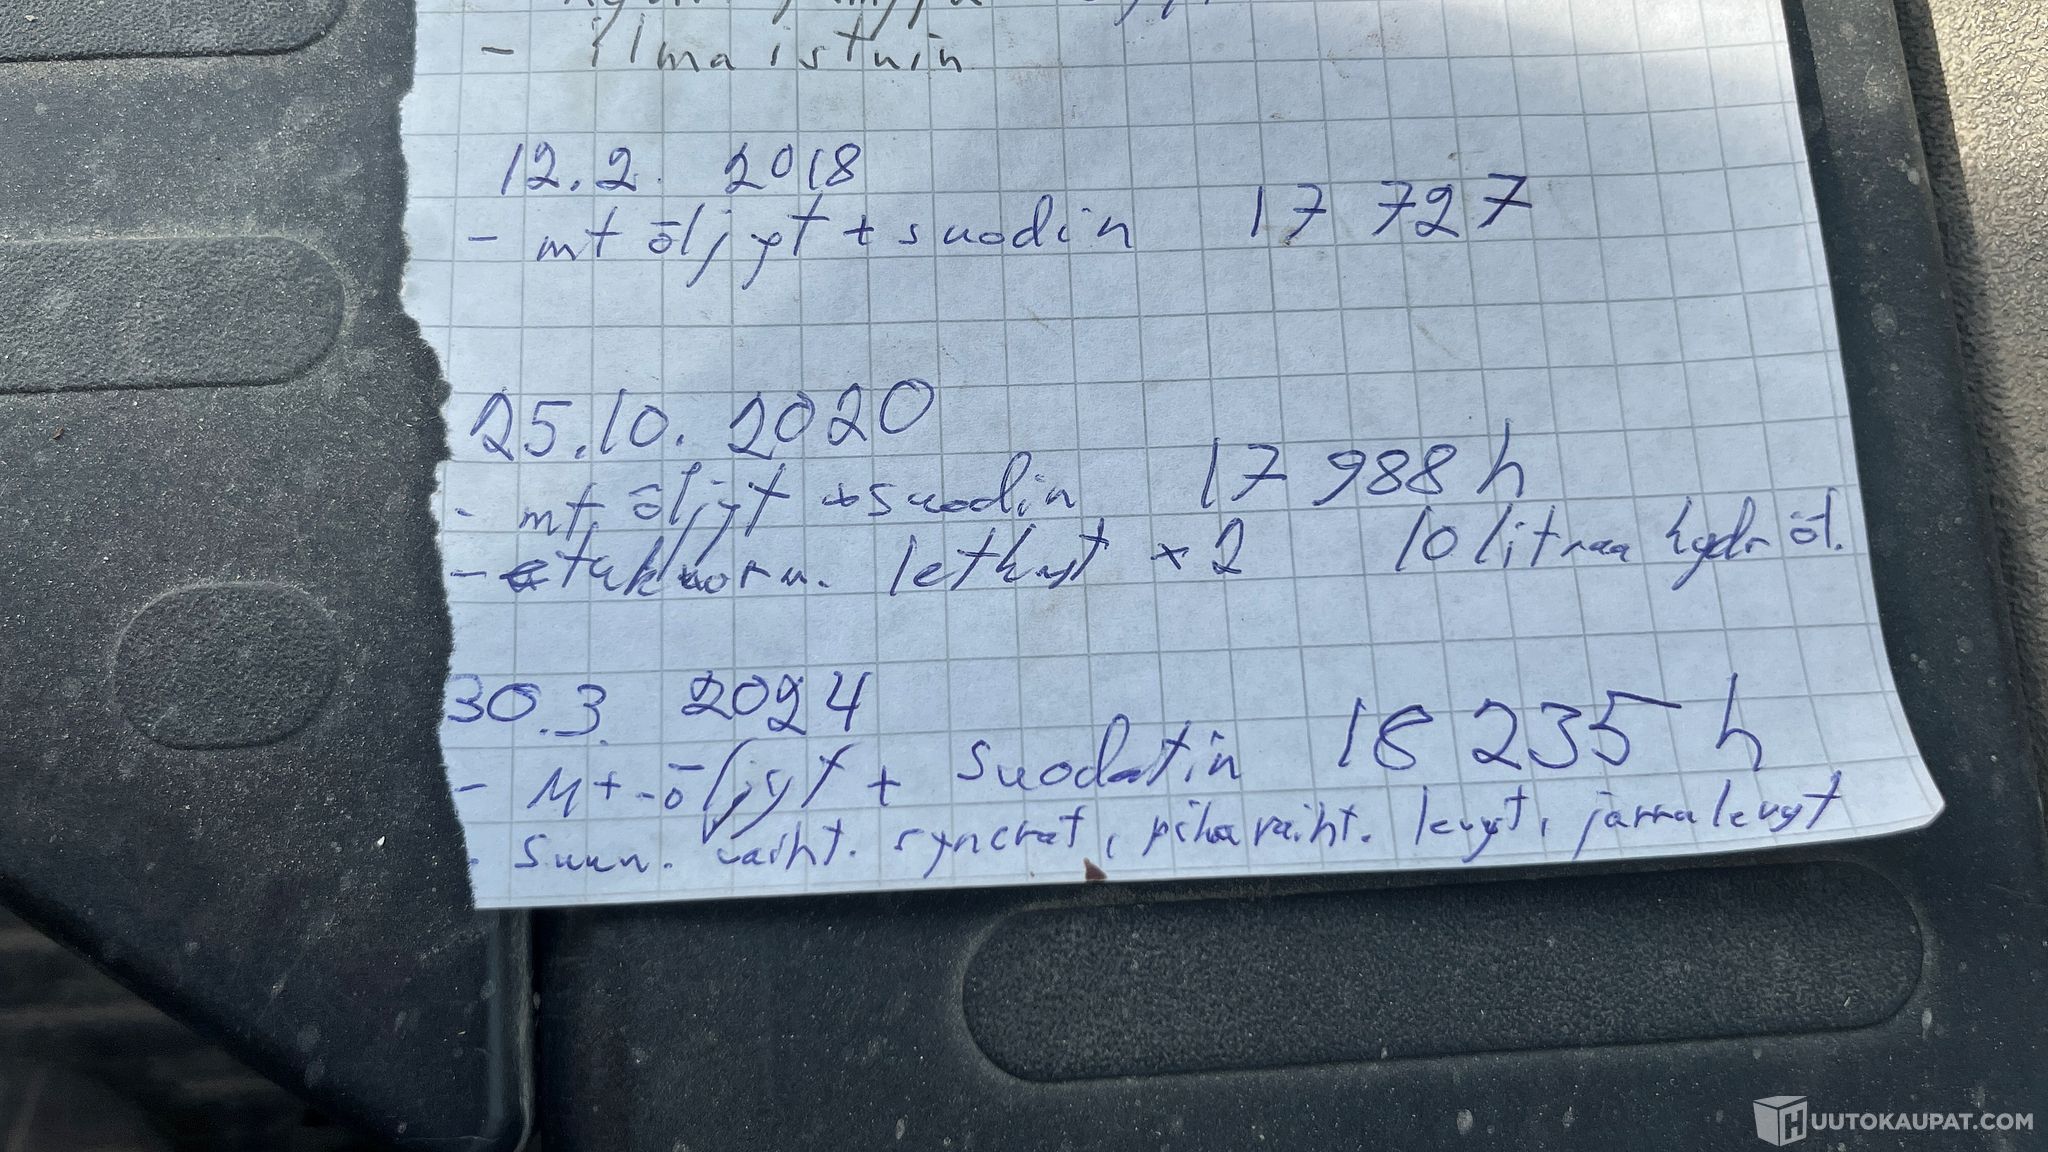 - ilmaistuin
12.2. 2018
- mt öljyt + suodin 17 727
25.10. 2020
- mt öljyt + suodin 17 988 h
- etukuorm. letkut x 2 10 litraa hydr öl.
30.3. 2024
- Mt-öljyt + suodatin 18 235 h
- Suun. vaiht. syncrat, pikavaiht. levyt, jarralevyt
HUUTOKAUPAT.COM